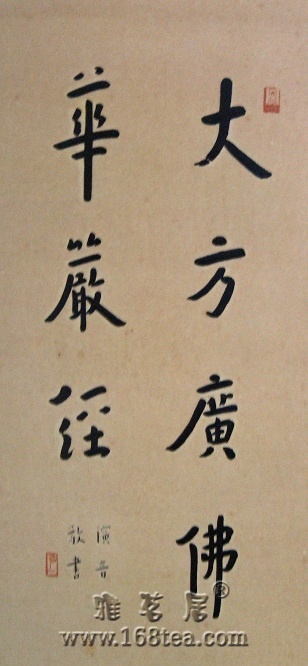 大方廣佛
華嚴經
演音
敬書
雅茗居®
www.168tea.com